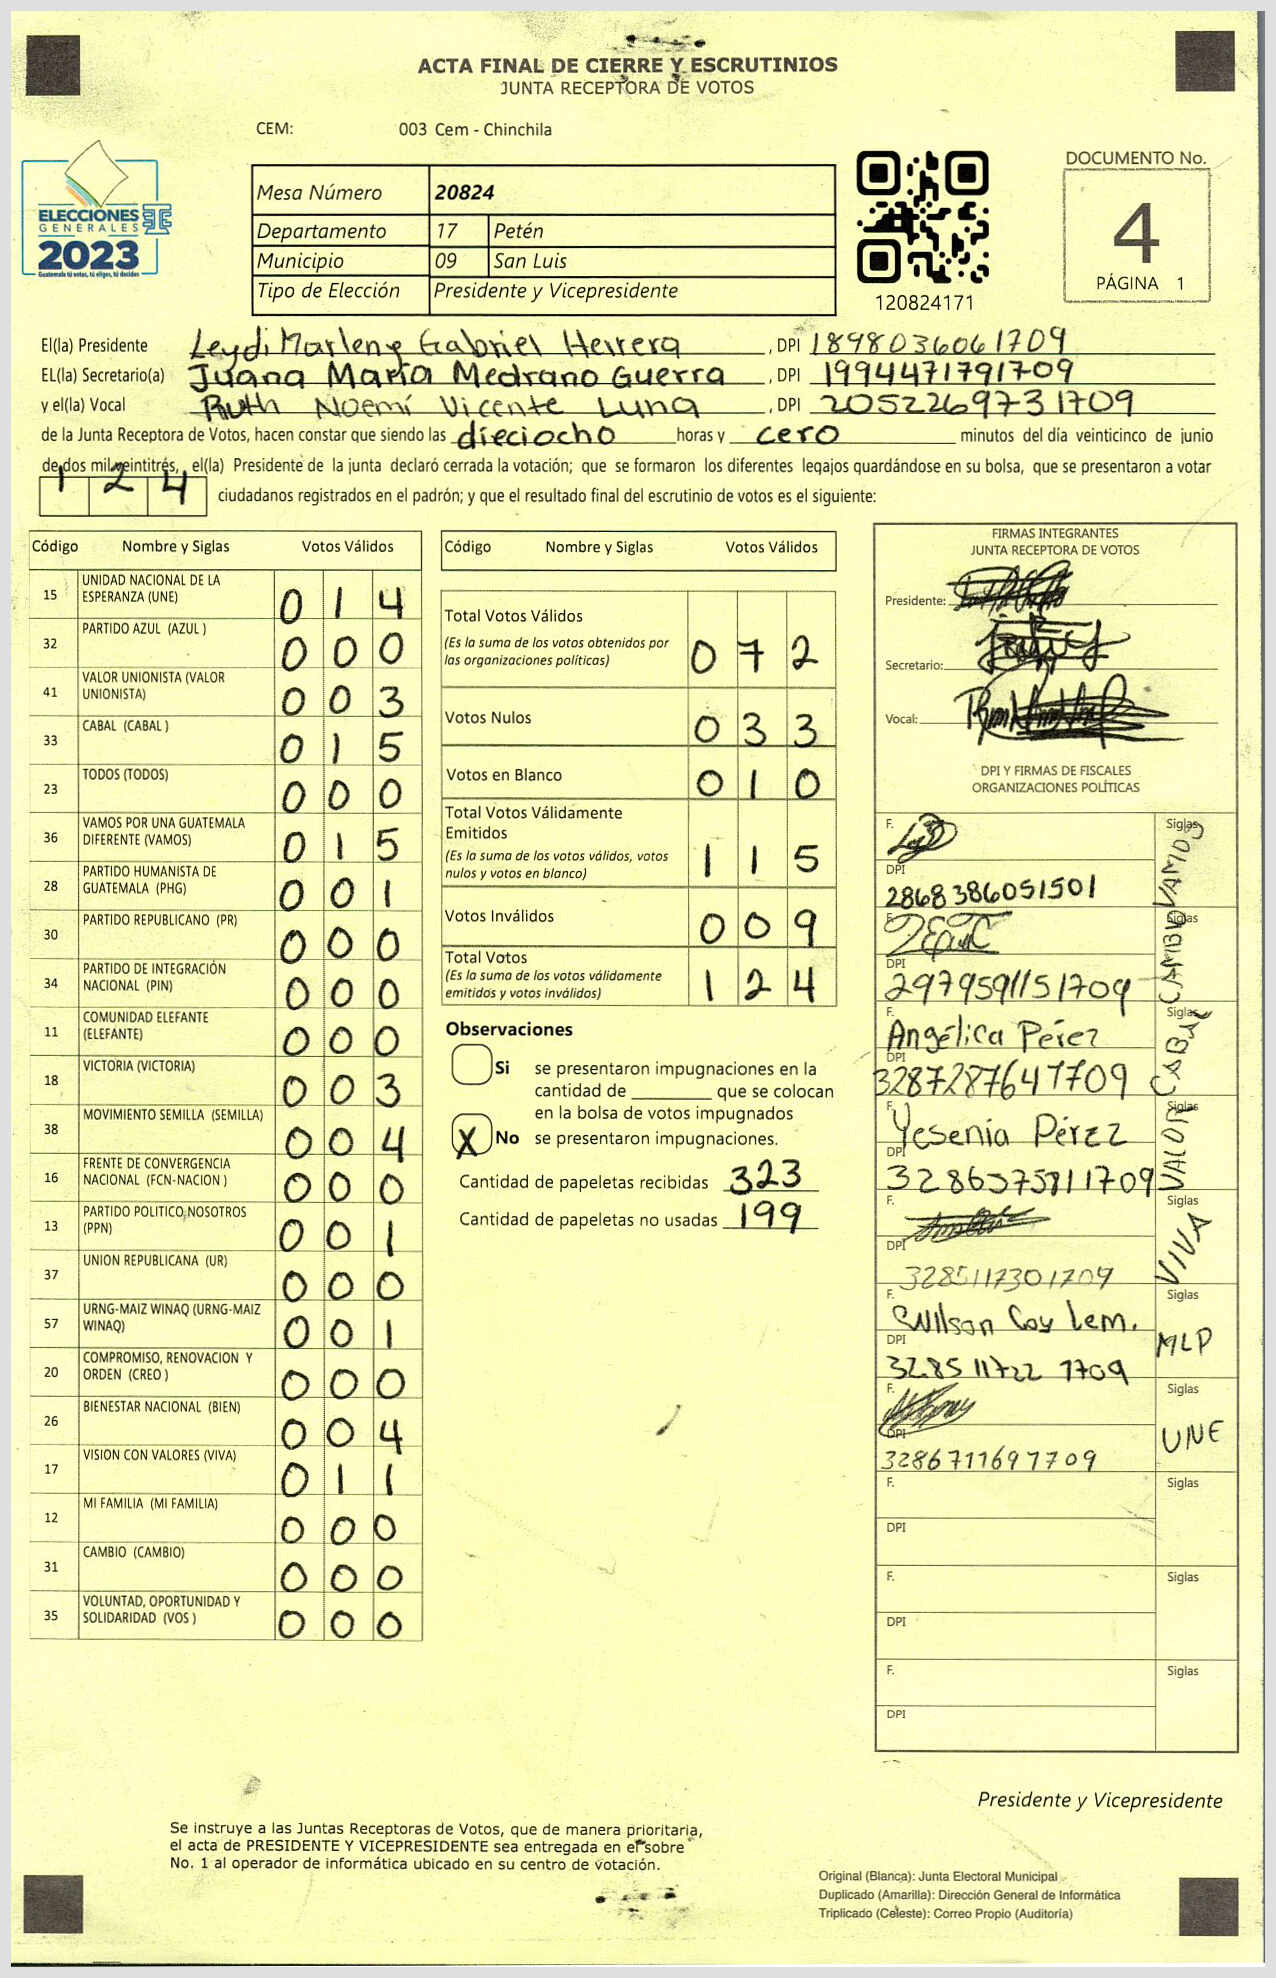 ACTA FINAL DE CIERRE Y ESCRUTINIOS
JUNTA RECEPTORA DE VOTOS
CEM: 003 Cem - Chinchila
ELECCIONES
GENERALES
2023
Guatemala tú votas, tú eliges, tú decides
Mesa Número 20824
Departamento 17 Petén
Municipio 09 San Luis
Tipo de Elección Presidente y Vicepresidente
120824171
DOCUMENTO No.
4
PÁGINA 1
El(la) Presidente Leydi Marleny Gabriel Herrera , DPI 1898036061709
EL(la) Secretario(a) Juana María Medrano Guerra , DPI 1994471791709
y el(la) Vocal Ruth Noemí Vicente Luna , DPI 2052269731709
de la Junta Receptora de Votos, hacen constar que siendo las dieciocho horas y cero minutos del día veinticinco de junio
de dos mil veintitrés, el(la) Presidente de la junta declaró cerrada la votación; que se formaron los diferentes legajos quardándose en su bolsa, que se presentaron a votar
124 ciudadanos registrados en el padrón; y que el resultado final del escrutinio de votos es el siguiente:
Código Nombre y Siglas Votos Válidos
15 UNIDAD NACIONAL DE LA ESPERANZA (UNE) 014
32 PARTIDO AZUL (AZUL ) 000
41 VALOR UNIONISTA (VALOR UNIONISTA) 003
33 CABAL (CABAL ) 015
23 TODOS (TODOS) 000
36 VAMOS POR UNA GUATEMALA DIFERENTE (VAMOS) 015
28 PARTIDO HUMANISTA DE GUATEMALA (PHG) 001
30 PARTIDO REPUBLICANO (PR) 000
34 PARTIDO DE INTEGRACIÓN NACIONAL (PIN) 000
11 COMUNIDAD ELEFANTE (ELEFANTE) 000
18 VICTORIA (VICTORIA) 003
38 MOVIMIENTO SEMILLA (SEMILLA) 004
16 FRENTE DE CONVERGENCIA NACIONAL (FCN-NACION ) 000
13 PARTIDO POLITICO NOSOTROS (PPN) 001
37 UNION REPUBLICANA (UR) 000
57 URNG-MAIZ WINAQ (URNG-MAIZ WINAQ) 001
20 COMPROMISO, RENOVACION Y ORDEN (CREO ) 000
26 BIENESTAR NACIONAL (BIEN) 004
17 VISION CON VALORES (VIVA) 011
12 MI FAMILIA (MI FAMILIA) 000
31 CAMBIO (CAMBIO) 000
35 VOLUNTAD, OPORTUNIDAD Y SOLIDARIDAD (VOS ) 000
Código Nombre y Siglas Votos Válidos
Total Votos Válidos
(Es la suma de los votos obtenidos por
las organizaciones políticas) 072
Votos Nulos 033
Votos en Blanco 010
Total Votos Válidamente
Emitidos
(Es la suma de los votos válidos, votos
nulos y votos en blanco) 115
Votos Inválidos 009
Total Votos
(Es la suma de los votos válidamente
emitidos y votos inválidos) 124
Observaciones
Si se presentaron impugnaciones en la
cantidad de ________ que se colocan
en la bolsa de votos impugnados
X No se presentaron impugnaciones.
Cantidad de papeletas recibidas 323
Cantidad de papeletas no usadas 199
FIRMAS INTEGRANTES
JUNTA RECEPTORA DE VOTOS
Presidente:
Secretario:
Vocal:
DPI Y FIRMAS DE FISCALES
ORGANIZACIONES POLÍTICAS
F. Siglas VAMOS
DPI 2868386051501
F. Siglas CAMBIO
DPI 2979591151709
F. Angélica Pérez Siglas CABAL
DPI 3287287641709
F. Yesenia Pérez Siglas VALOR
DPI 3286575811709
F. Siglas VIVA
DPI 3285117301709
F. Wilson Coy Lem. Siglas MLP
DPI 3285117221709
F. Siglas UNE
DPI 3286711691709
F. Siglas
DPI
F. Siglas
DPI
F. Siglas
DPI
Presidente y Vicepresidente
Se instruye a las Juntas Receptoras de Votos, que de manera prioritaria,
el acta de PRESIDENTE Y VICEPRESIDENTE sea entregada en el sobre
No. 1 al operador de informática ubicado en su centro de votación.
Original (Blanca): Junta Electoral Municipal
Duplicado (Amarilla): Dirección General de Informática
Triplicado (Celeste): Correo Propio (Auditoría)